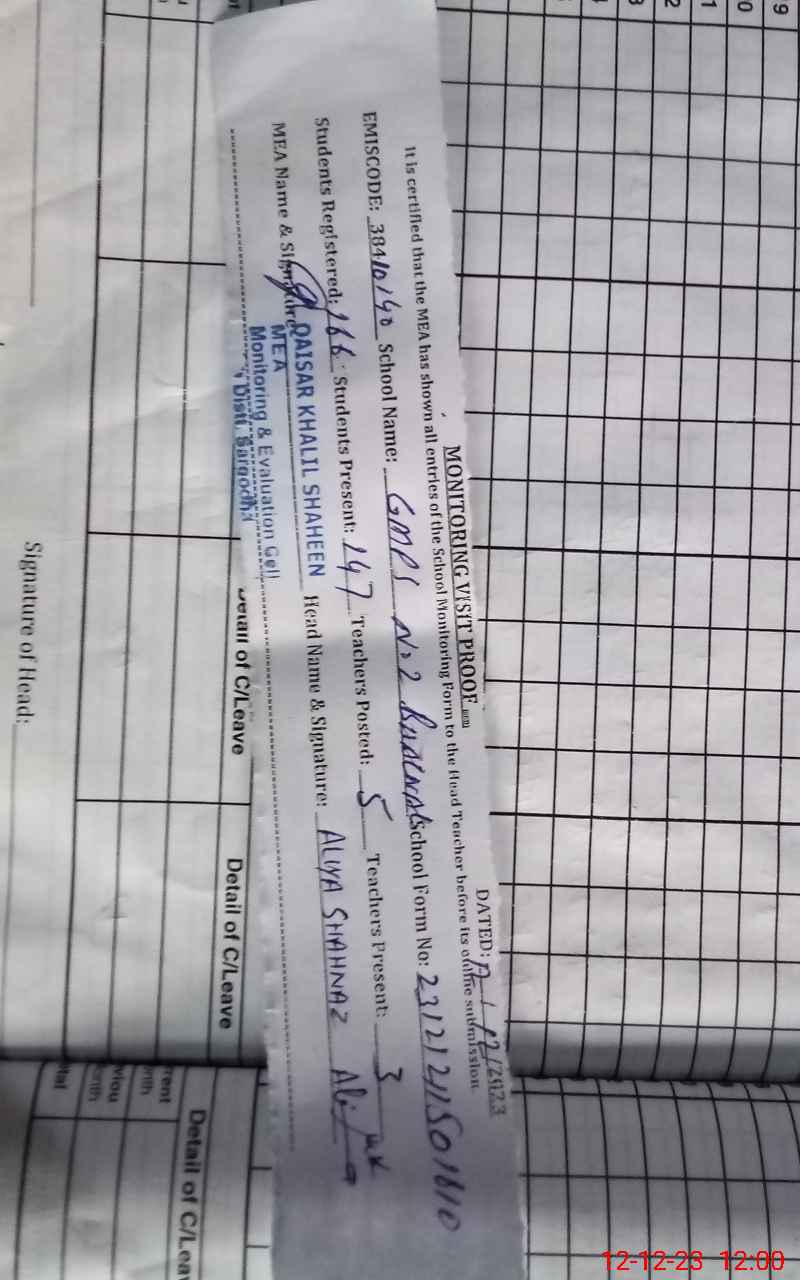 MONITORING VISIT PROOF
DATED: /12/2023
It is certified that the MEA has shown all entries of the School Monitoring Form to the Head Teacher before its online submission.
EMISCODE: 38410140 School Name: GMPS No2 School Form No:
Students Registered: 166 Students Present: 147 Teachers Posted: 5 Teachers Present: 3
MEA Name & Signature: Head Name & Signature: ALIYA SHAHNAZ
QAISAR KHALIL SHAHEEN
MEA
Monitoring & Evaluation Cell
Distt. Sargodha
Detail of C/Leave
Detail of C/Leave
Detail of C/Leav
Signature of Head:
12-12-23 12:00